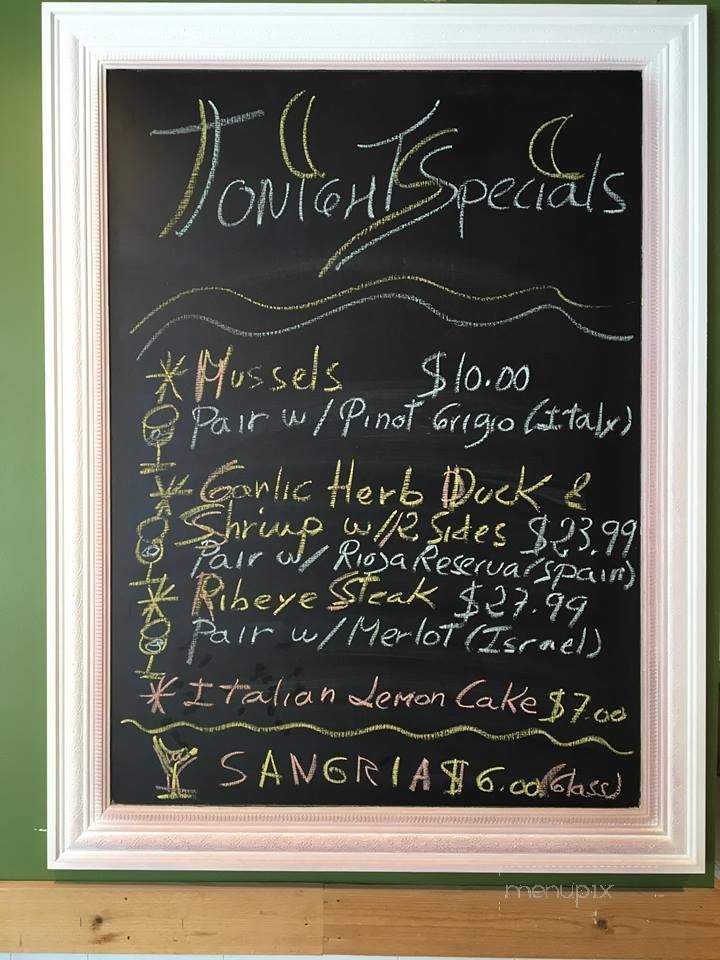 TONIGHT Specials
* Mussels $10.00
Pair w/ Pinot Grigio (Italy)
* Garlic Herb Duck &
Shrimp w/2 Sides $23.99
Pair w/ Rioja Reserva (Spain)
* Ribeye Steak $27.99
Pair w/ Merlot (Israel)
* Italian Lemon Cake $7.00
SANGRIA $6.00 (Glass)
menupix